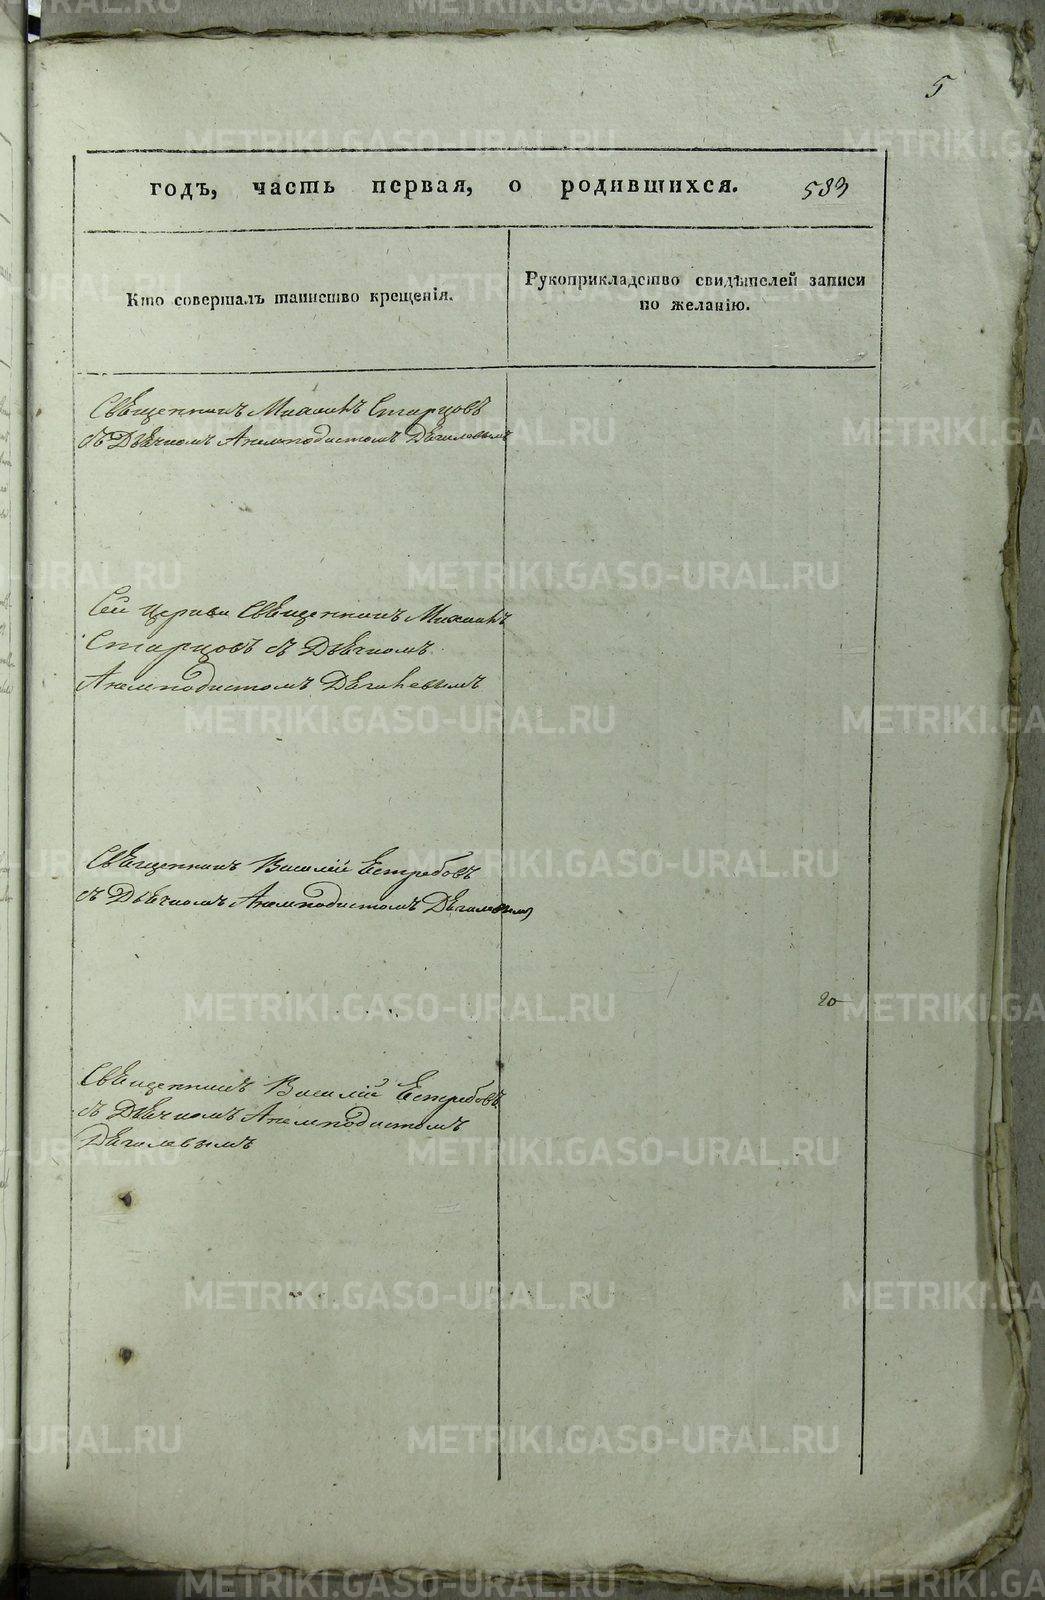 5
годъ, часть первая, о родившихся. 583
Кто совершалъ таинство крещенія.
Рукоприкладство свидѣтелей записи
по желанію.
Священникъ Михаилъ Старцовъ
съ Дьячкомъ Анемподистомъ Дягилевымъ
Сей Церкви Священникъ Михаилъ
Старцовъ съ Дьячкомъ
Анемподистомъ Дягилевымъ
Священникъ Василій Естребовъ
съ Дьячкомъ Анемподистомъ Дягилевымъ
20
Священникъ Василій Естребовъ
съ Дьячкомъ Анемподистомъ
Дягилевымъ
METRIKI.GASO-URAL.RU